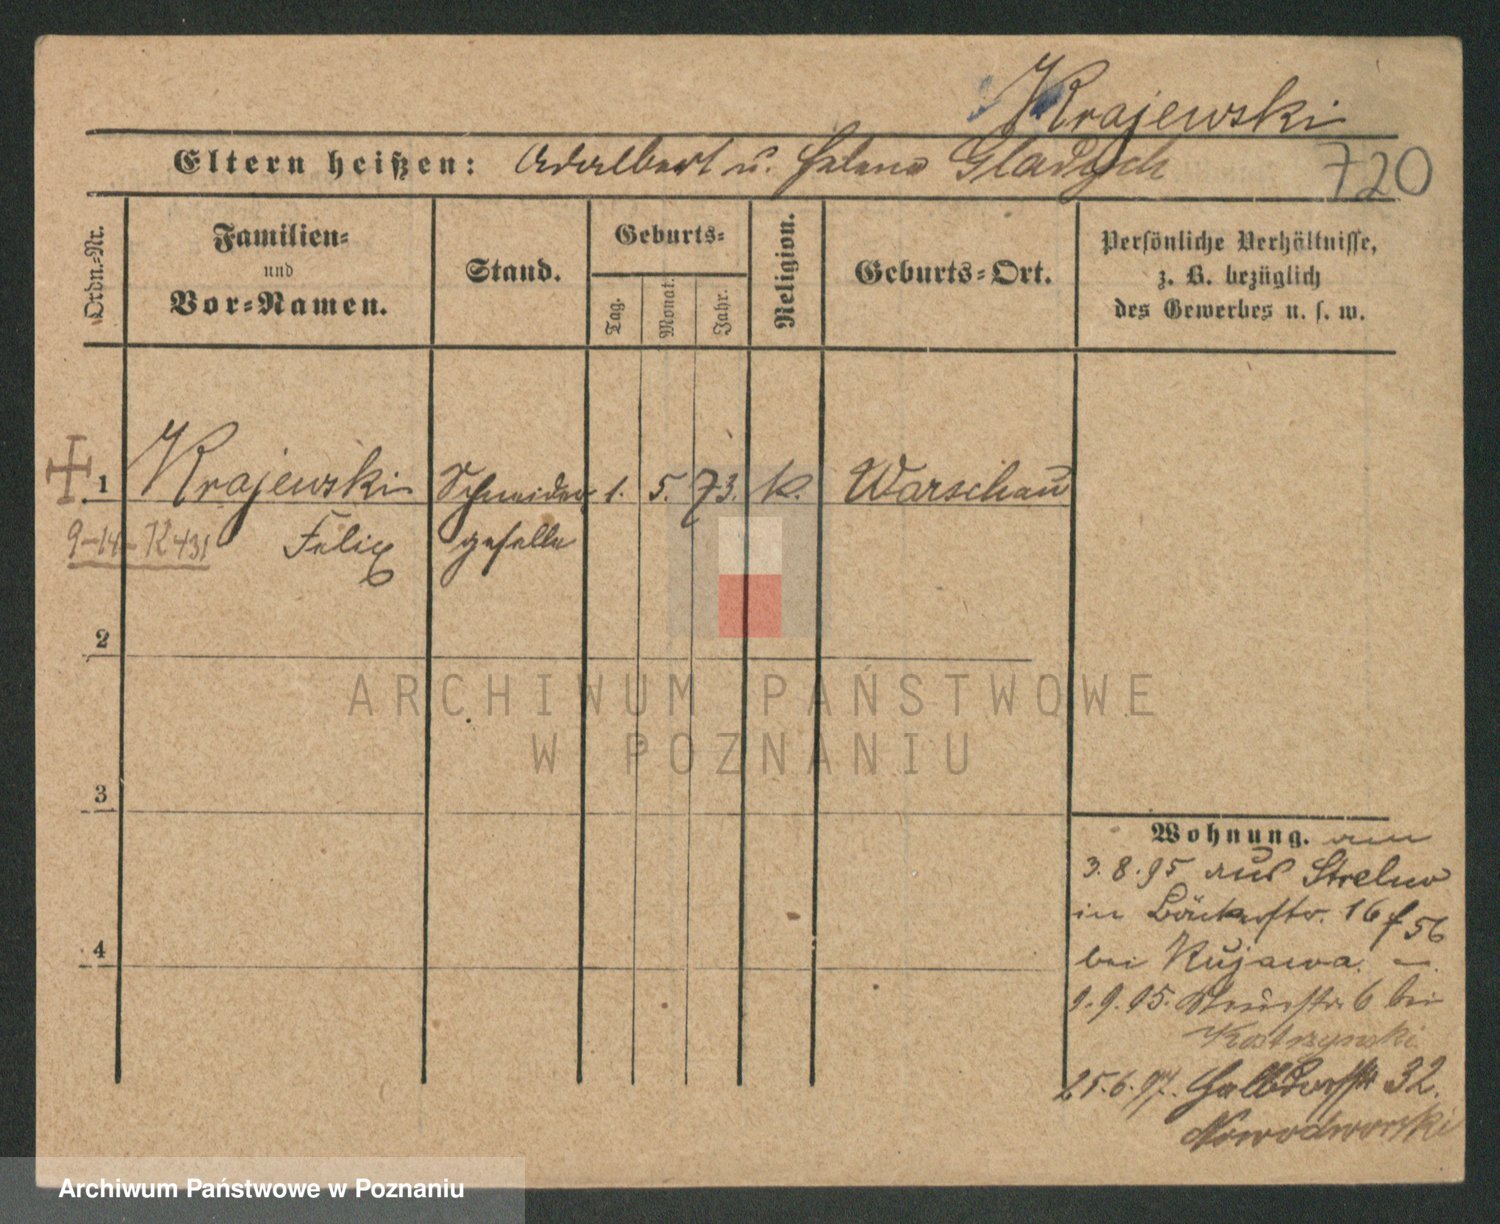 Krajewski
Eltern heißen: Adalbert u. Helene Gladysch
720
Ordn.-Nr.
Familien-
und
Vor-Namen.
Stand.
Geburts-
Tag.
Monat.
Jahr.
Religion.
Geburts-Ort.
Persönliche Verhältnisse,
z. B. bezüglich
des Gewerbes u. s. w.
1 Krajewski Schneider 1. 5. 73. k. Warschau
9-14-K431 Felix geselle
2
3
4
Wohnung. am
3.8.95 aus Strelno
in Bäckerstr. 16 f 56
bei Kujawa.
9.9.95. 6 bei
Kostrzynski
25.6.97. Halbdorfstr 32.
Nowodworski
ARCHIWUM PAŃSTWOWE
W POZNANIU
Archiwum Państwowe w Poznaniu